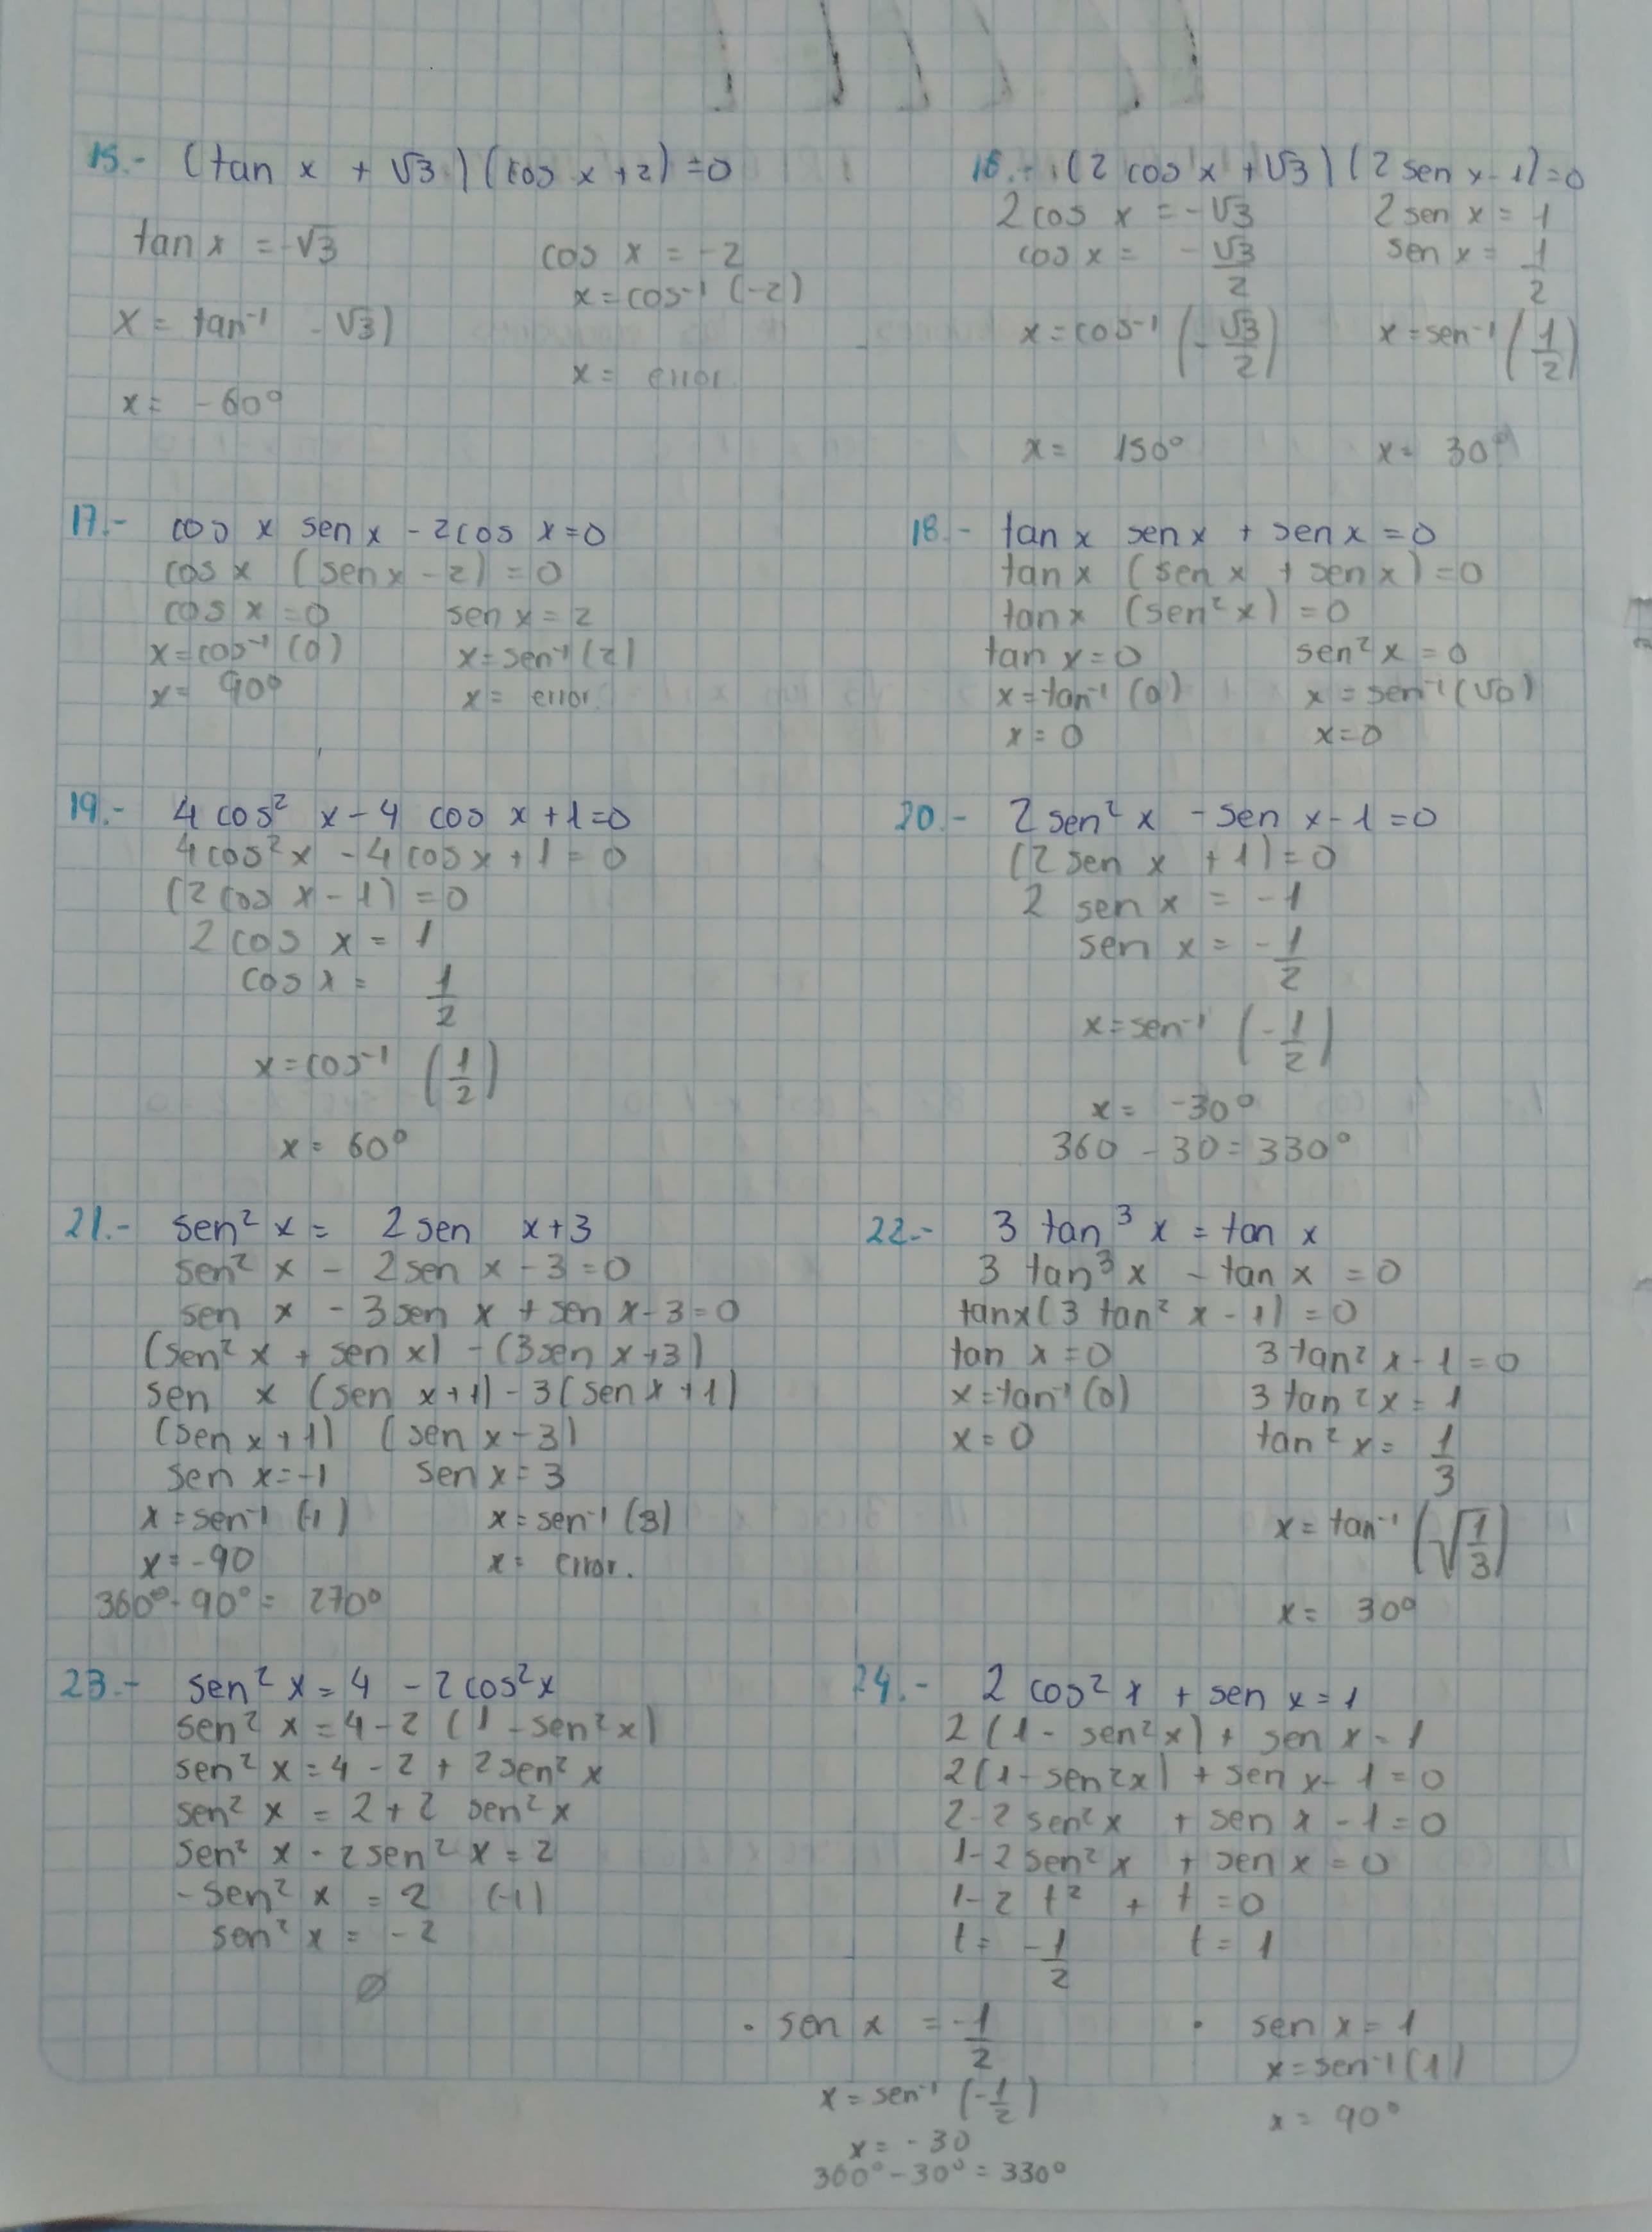 15.- (tan x + √3) (cos x+2) =0
tan x = -√3
cos x = -2
x = cos⁻¹ (-2)
x = tan⁻¹ -√3)
x = error
x = -60°
16.- (2 cos x + √3) (2 sen x-1)=0
2 cos x = -√3
2 sen x = 1
cos x = -√3/2
sen x = 1/2
x = cos⁻¹ (-√3/2)
x = sen⁻¹ (1/2)
x = 150°
x = 30°
17.- cos x sen x - 2cos x=0
cos x (sen x - 2) = 0
cos x = 0 sen x = 2
x = cos⁻¹ (0) x = sen⁻¹ (2)
x = 90° x = error
18.- tan x sen x + sen x = 0
tan x (sen x + sen x) = 0
tan x (sen² x) = 0
tan x = 0 sen² x = 0
x = tan⁻¹ (0) x = sen⁻¹ (√0)
x = 0 x = 0
19.- 4 cos² x - 4 cos x + 1=0
4 cos² x - 4 cos x + 1 = 0
(2 cos x - 1) = 0
2 cos x = 1
cos x = 1/2
x = cos⁻¹ (1/2)
x = 60°
20.- 2 sen² x - sen x - 1 = 0
(2 sen x + 1) = 0
2 sen x = -1
sen x = -1/2
x = sen⁻¹ (-1/2)
x = -30°
360 - 30 = 330°
21.- sen² x = 2 sen x+3
sen² x - 2 sen x - 3 = 0
sen x - 3 sen x + sen x - 3 = 0
(sen² x + sen x) - (3 sen x + 3)
sen x (sen x+1) - 3 (sen x + 1)
(sen x + 1) (sen x - 3)
sen x = -1 sen x = 3
x = sen⁻¹ (-1) x = sen⁻¹ (3)
x = -90 x = error.
360° - 90° = 270°
22.- 3 tan³ x = tan x
3 tan³ x - tan x = 0
tan x (3 tan² x - 1) = 0
tan x = 0 3 tan² x - 1 = 0
x = tan⁻¹ (0) 3 tan² x = 1
x = 0 tan² x = 1/3
x = tan⁻¹ (√1/3)
x = 30°
23.- sen² x = 4 - 2 cos² x
sen² x = 4 - 2 (1 - sen² x)
sen² x = 4 - 2 + 2 sen² x
sen² x = 2 + 2 sen² x
sen² x - 2 sen² x = 2
- sen² x = 2 (-1)
sen² x = -2
∅
24.- 2 cos² x + sen x = 1
2 (1 - sen² x) + sen x = 1
2 (1 - sen² x) + sen x - 1 = 0
2 - 2 sen² x + sen x - 1 = 0
1 - 2 sen² x + sen x = 0
1 - 2 t² + t = 0
t = -1/2 t = 1
• sen x = -1/2 • sen x = 1
x = sen⁻¹ (-1/2) x = sen⁻¹ (1)
x = -30 x = 90°
360° - 30° = 330°